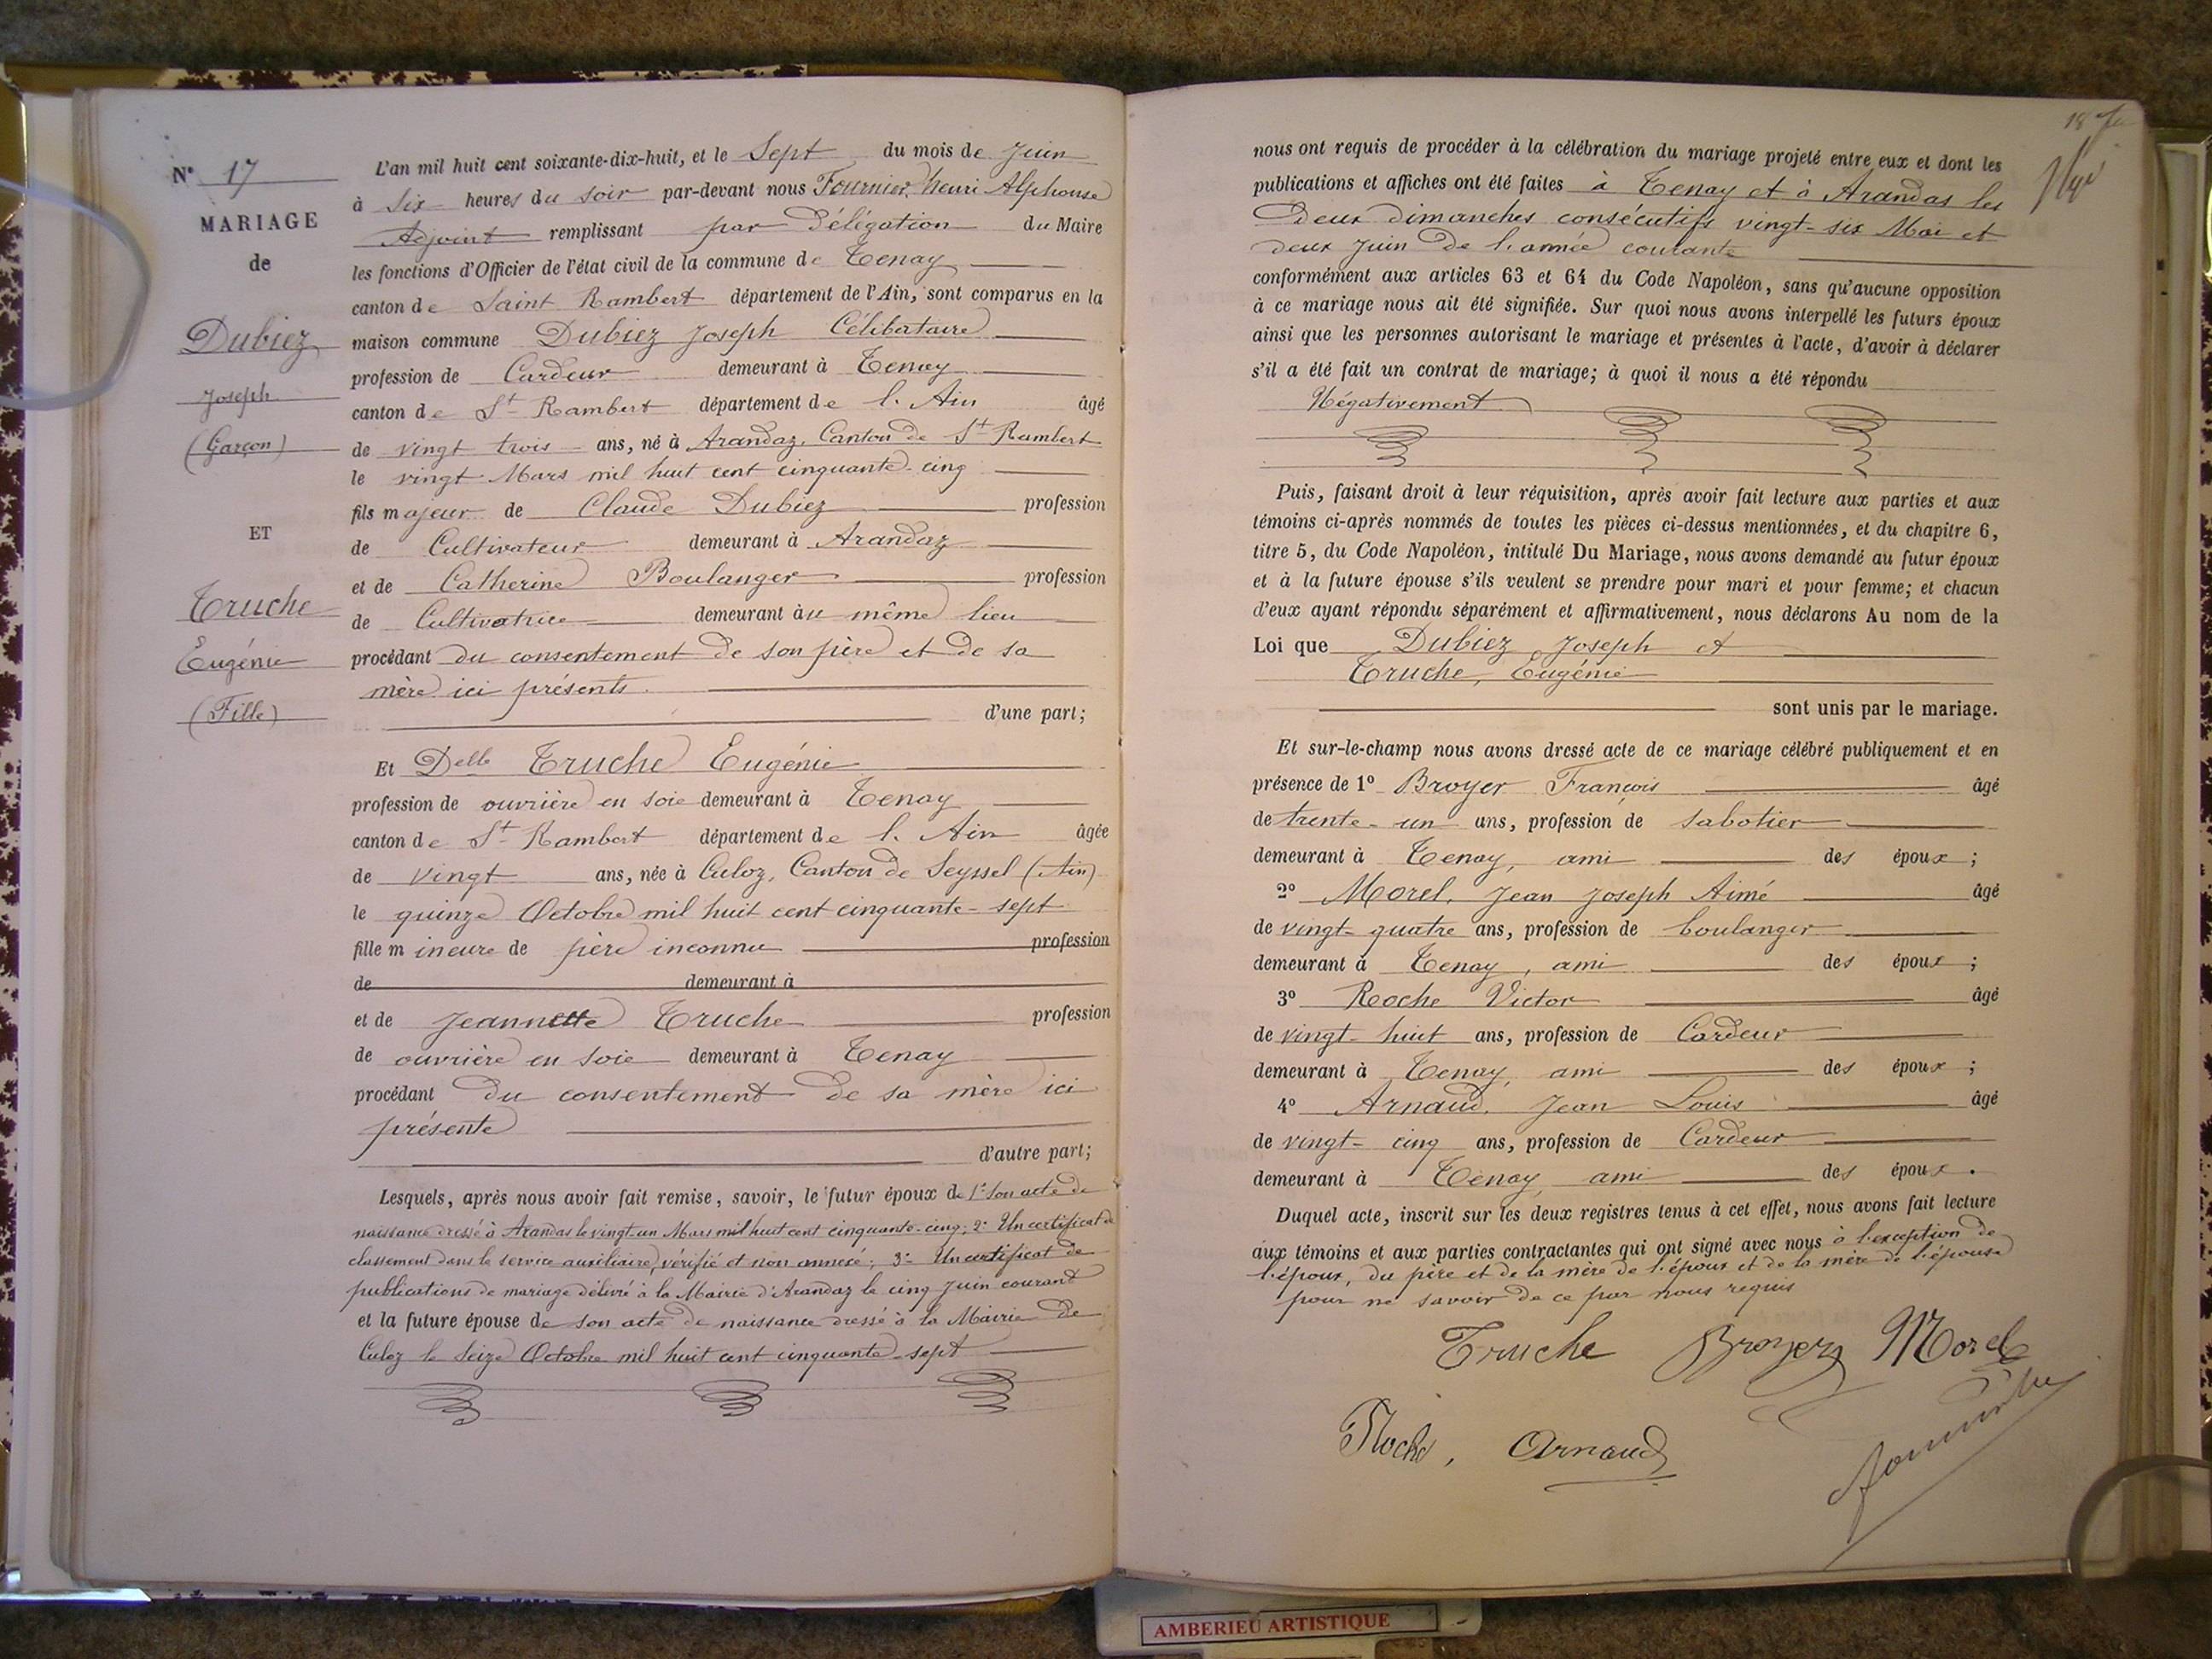 N° 17
MARIAGE
de
Dubiez
Joseph
(Garçon)
ET
Truche
Eugénie
(Fille)
L'an mil huit cent soixante-dix-huit, et le Sept du mois de Juin
à six heures du soir par-devant nous Fournier, henri Alphonse
Adjoint remplissant par Délégation du Maire
les fonctions d'Officier de l'état civil de la commune de Tenay
canton de Saint Rambert département de l'Ain, sont comparus en la
maison commune Dubiez Joseph Célibataire
profession de Cardeur demeurant à Tenay
canton de St Rambert département de l'Ain âgé
de vingt trois ans, né à Arandaz, Canton de St Rambert
le vingt Mars mil huit cent cinquante-cinq
fils majeur de Claude Dubiez profession
de Cultivateur demeurant à Arandaz
et de Catherine Boulanger profession
de Cultivatrice demeurant au même lieu
procédant du consentement de son père et de sa
mère ici présents.
d'une part;
Et Delle Truche Eugénie
profession de ouvrière en soie demeurant à Tenay
canton de St Rambert département de l'Ain âgée
de vingt ans, née à Culoz, Canton de Seyssel (Ain)
le quinze Octobre mil huit cent cinquante-sept
fille mineure de père inconnu profession
de demeurant à
et de Jeannette Truche profession
de ouvrière en soie demeurant à Tenay
procédant du consentement de sa mère ici
présente
d'autre part;
Lesquels, après nous avoir fait remise, savoir, le futur époux de 1° son acte de
naissance dressé à Arandas le vingt-un Mars mil huit cent cinquante-cinq; 2° Un certificat de
classement dans le service auxiliaire, vérifié et non annexé; 3° Un certificat de
publications de mariage délivré à la Mairie d'Arandaz le cinq Juin courant
et la future épouse de son acte de naissance dressé à la Mairie de
Culoz le seize Octobre mil huit cent cinquante-sept
nous ont requis de procéder à la célébration du mariage projeté entre eux et dont les
publications et affiches ont été faites à Tenay et à Arandas les
Deux dimanches consécutifs vingt-six Mai et
deux Juin de l'année courante
conformément aux articles 63 et 64 du Code Napoléon, sans qu'aucune opposition
à ce mariage nous ait été signifiée. Sur quoi nous avons interpellé les futurs époux
ainsi que les personnes autorisant le mariage et présentes à l'acte, d'avoir à déclarer
s'il a été fait un contrat de mariage; à quoi il nous a été répondu
Négativement
Puis, faisant droit à leur réquisition, après avoir fait lecture aux parties et aux
témoins ci-après nommés de toutes les pièces ci-dessus mentionnées, et du chapitre 6,
titre 5, du Code Napoléon, intitulé Du Mariage, nous avons demandé au futur époux
et à la future épouse s'ils veulent se prendre pour mari et pour femme; et chacun
d'eux ayant répondu séparément et affirmativement, nous déclarons Au nom de la
Loi que Dubiez Joseph et
Truche, Eugénie
sont unis par le mariage.
Et sur-le-champ nous avons dressé acte de ce mariage célébré publiquement et en
présence de 1° Broyer François âgé
de trente-un ans, profession de sabotier
demeurant à Tenay, ami des époux;
2° Morel, Jean Joseph Aimé âgé
de vingt-quatre ans, profession de boulanger
demeurant à Tenay, ami des époux;
3° Roche Victor âgé
de vingt-huit ans, profession de Cardeur
demeurant à Tenay, ami des époux;
4° Arnaud, Jean Louis âgé
de vingt-cinq ans, profession de Cardeur
demeurant à Tenay, ami des époux.
Duquel acte, inscrit sur les deux registres tenus à cet effet, nous avons fait lecture
aux témoins et aux parties contractantes qui ont signé avec nous à l'exception de
l'époux, du père et de la mère de l'époux et de la mère de l'épouse
pour ne savoir de ce par nous requis
Truche Broyer Morel
Roche, Arnaud
AMBERIEU ARTISTIQUE